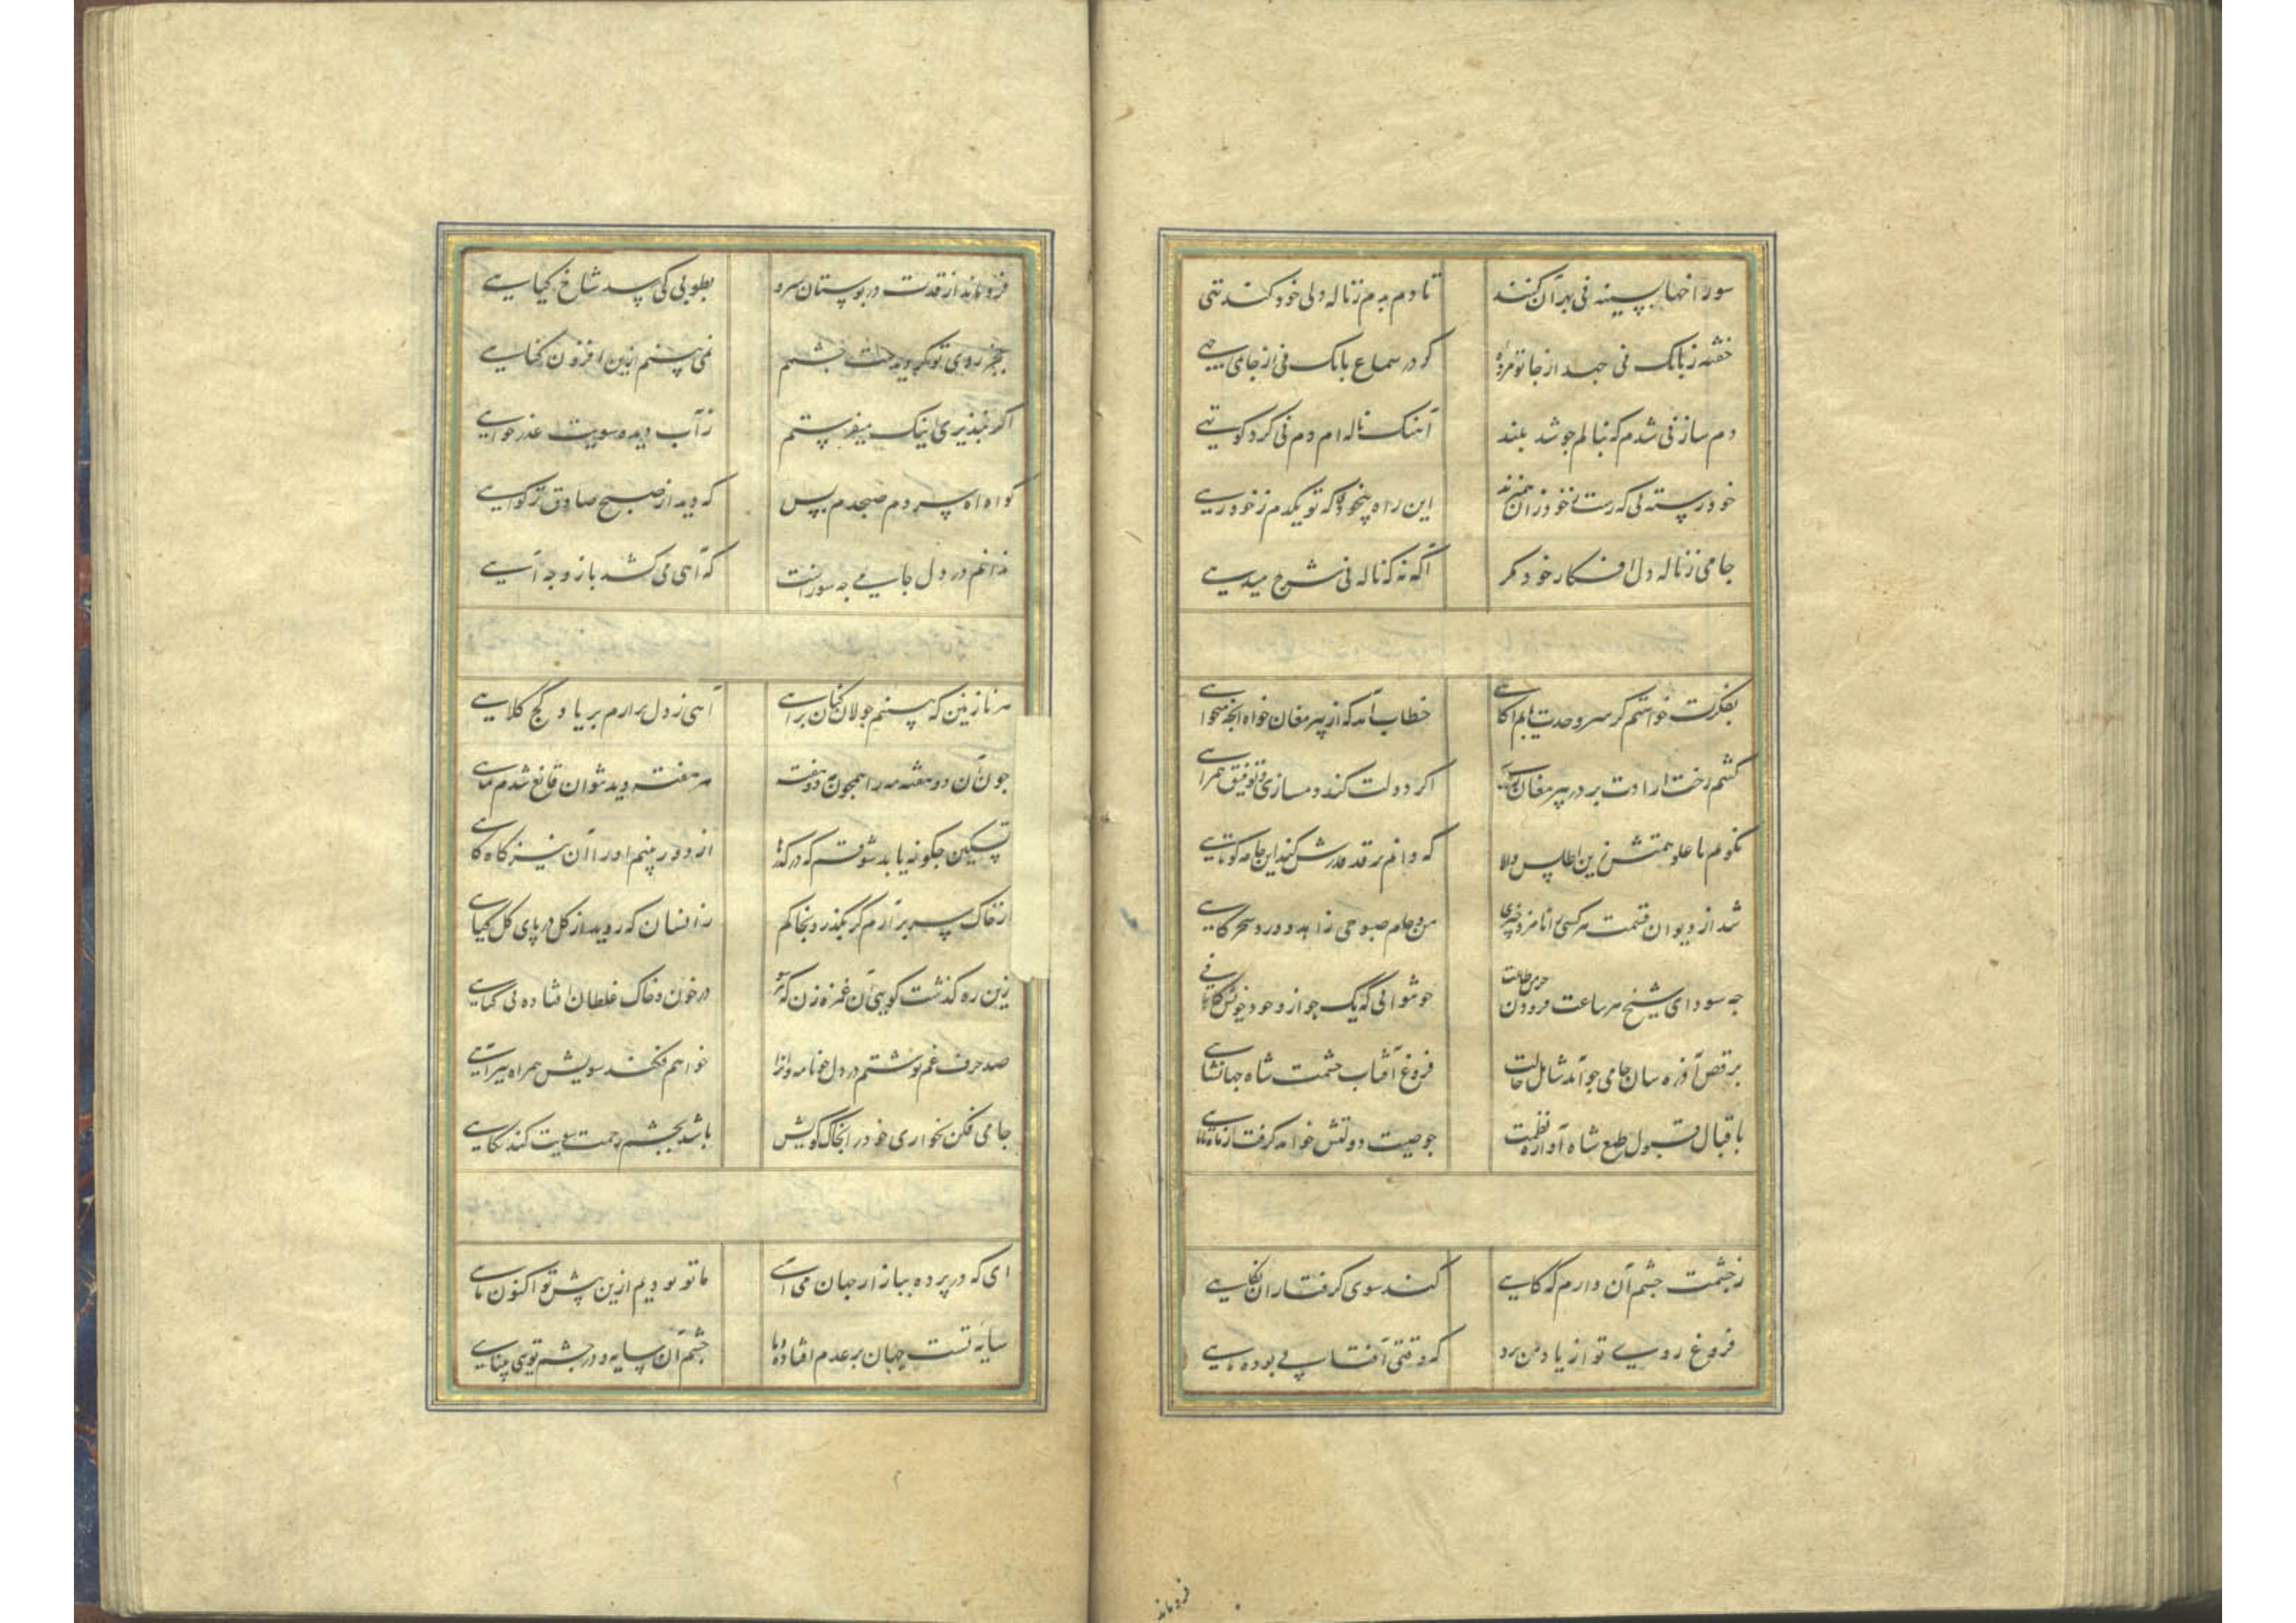 سوراخها بسینه نی بهر آن کنند تا دم بدم ز ناله دلی خود کند تهی
خفته ز بانک نی جهد از جا تو مرده کر در سماع بانک نی از جای
دم ساز نی شدم که نبالم جو شد بلند آهنک ناله ام دم نی کرد کوتهی
خود رسته نی که رست ز خود زان این راه بیخود که تو یکدم ز خود رهی
جامی ز ناله دل افکار خود مکر آکه نه که ناله نی شرح میدهی
بفکرت خواستم کز سر وحدت یابم آکاهی خطاب آمد که از پیر مغان خواه انجه میخواهی
کشم رخت ارادت بر در پیر مغان اکر دولت کند دمسازی و توفیق همراهی
نکویم با علو همتش زین اطلس والا که دانم بر قد قدرش کند این جامه کوتاهی
شد از دیوان قسمت هر کسی را نامزد جیزی من و جام صبوحی زاهد و ورد سحرکاهی
جه سود ای شیخ هر ساعت فزودن خرمن طاعت جو نتوانی که یک جو از وجود خویش کاهی
برقص آ ذره سان جامی جو آمد شامل حالت فروغ آفتاب حشمت شاه جهانشاهی
باقبال قبول طبع شاه آوازه نظمت جو صیت دولتش خواهد کرفت از ماه تا ماهی
ز جشمت جشم آن دارم که کاهی کند سوی کرفتاران نکاهی
فروغ روی تو از یاد من برد که وقتی آفتابی بوده ماهی
فروماند
فروماند از قدت در بوستان سرو بطوبی کی رسد شاخ کیاهی
بجز روی تو کر دیدست جشمم نمی بینم ازین افزون کناهی
اکر نپذیری اینک میفرستم ز آب دیده سویت عذرخواهی
کواه آه سردم صبحدم بس که دید از صبح صادق تر کواهی
ندانم در دل جامی جه سوزست که آهی می کشد باز و جه آهی
هر نازنین که بینم جولان کنان براهی آهی ز دل برارم بر یاد کج کلاهی
جون آن دو هفته مه را همجون مه دو هفته هر هفته دید نتوان قانع شدم بماهی
تسکین جکونه یابد شوقم که در کذرها از دور بینم او را آن نیز کاه کاهی
از خاک سر برآرم کر بکذرد بخاکم زانسان که روید از کل در پای کل کیاهی
زین ره کذشت کویی آن غمزه زن که هر سو در خون و خاک غلطان افتاده بی کناهی
صد حرف غم نوشتم در دل جو نامه وانرا خواهم فکند سویش همراه تیر آهی
جامی فکن بخواری خود را بخاک کویش باشد بجشم رحمت سویت کند نکاهی
ای که در پرده ببازار جهان می آیی ما تو بودیم ازین پیش تو اکنون مایی
سایه تست جهان بر عدم افتاده جشم آن سایه و در جشم تویی بینایی